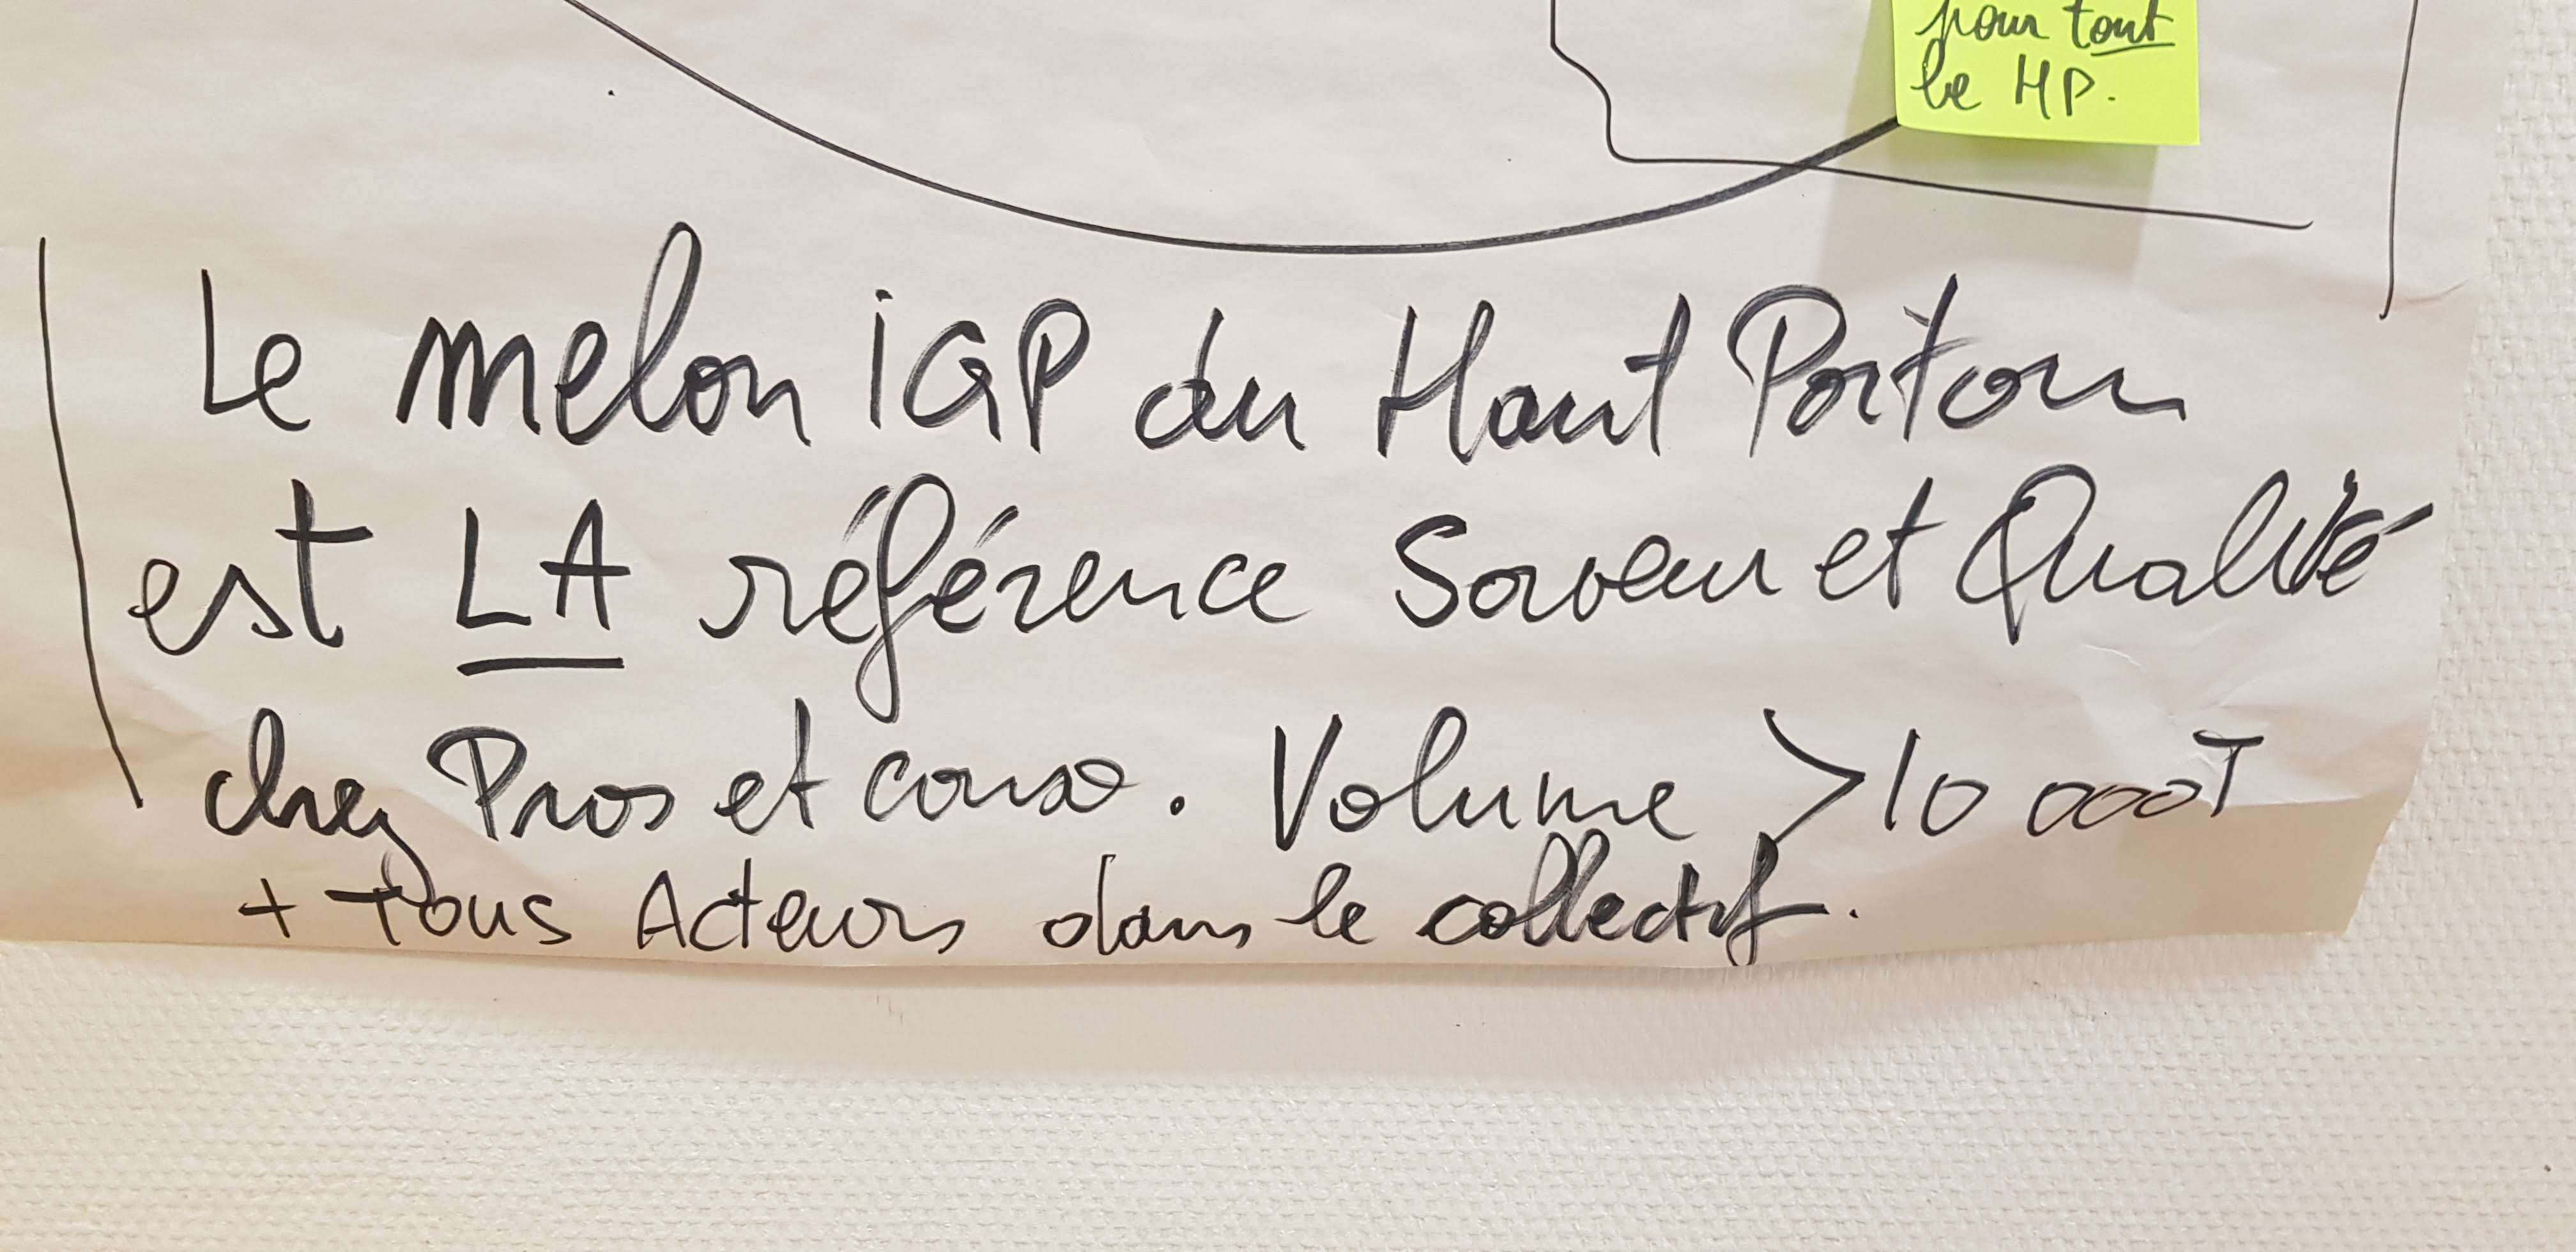 pour tout
le HP.
Le melon IGP du Haut Poitou
est LA référence Saveur et Qualité
chez Pros et conso. Volume > 10 000T
+ Tous Acteurs dans le collectif.